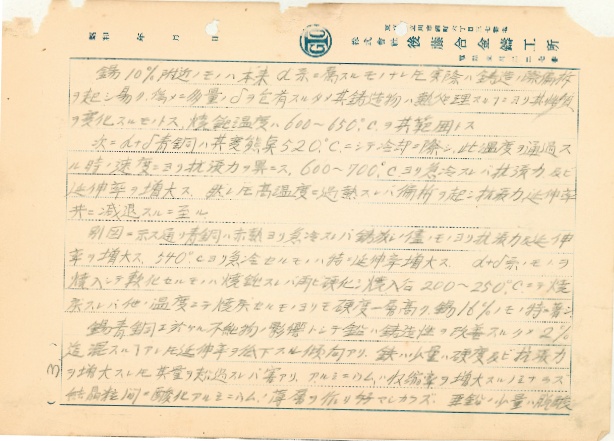 昭和　年　月　日
GTC
株式會社 後藤合金鑄工所
錫10%附近ノモノハ本来α系ニ属スルモノナレ圧実際ハ鋳造ノ際偏析
ヲ起シ易ク為メニ多量ノδヲ含有スルタメ其鋳造物ハ熱処理スルコトニヨリ其性質
ヲ変化スルモノトス、焼鈍温度ハ600〜650℃ヲ其範囲トス
次ニα+δ青銅ハ共変態点520℃ニシテ冷却ニ際シ、此温度ヲ通過ス
ル時ノ速度ニヨリ抗張力ヲ異ニス、600〜700℃ヨリ急冷スレバ抗張力及ビ
延伸率ヲ増大ス、然レ圧高温度ニ過熱スレバ偏析ヲ起シ抗張力延伸率
共ニ減退スルニ至ル
別図ニ示ス通リ青銅ハ赤熱ヨリ急冷スレバ鋳放シ儘ノモノヨリ抗張力及延伸
率ヲ増大ス、540℃ヨリ急冷セルモノハ特ニ延伸率増大ス α+δ系ノモノヲ
焼入シテ軟化セルモノハ焼鈍スレバ再ビ硬化シ焼入后200〜250℃ニテ焼
戻スレバ他ノ温度ニテ焼戻セルモノヨリモ硬度一層高ク、錫16%ノモノ特ニ著シ
錫青銅ニ於ケル不純物ノ影響トシテ鉛ハ鋳造性ヲ改善スルタメ2%
迄混スルコトアレ圧延伸率ヲ低下スル傾向アリ、鉄ハ少量ハ硬度及ビ抗張力
ヲ増大スレ圧其量ヲ超過スレバ害アリ、アルミニウムハ収縮率ヲ増大スルノミナラズ
結晶粒間ニ酸化アルミニウムノ薄層ヲ作リ好マシカラズ、亜鉛ハ少量ハ脱酸
(3)